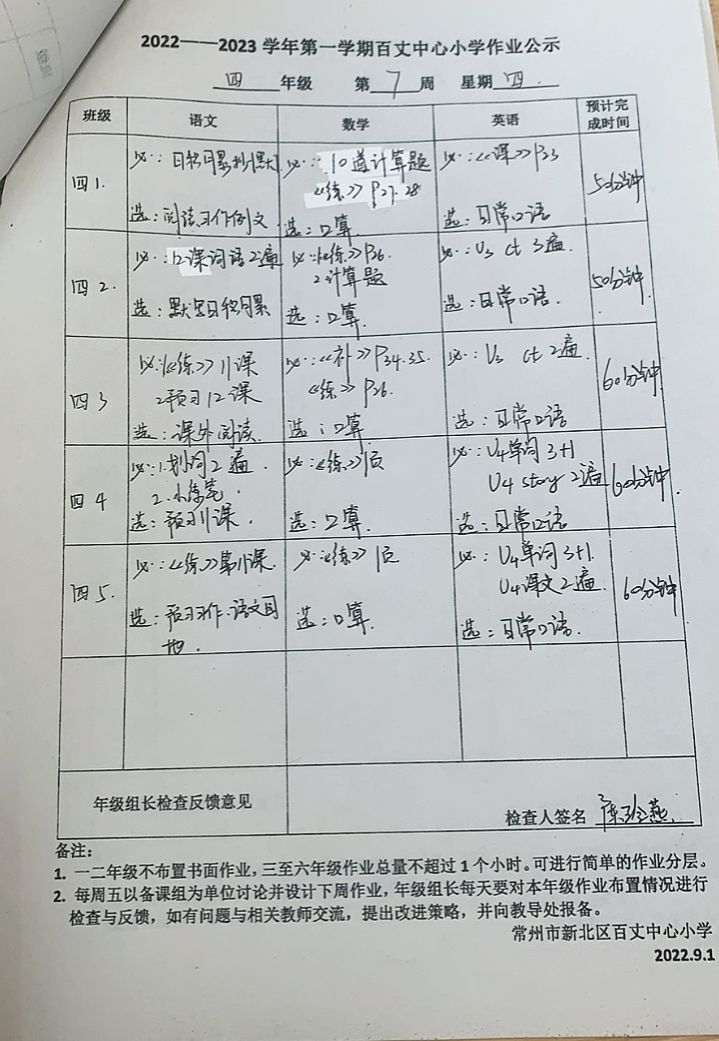 2022——2023 学年第一学期百丈中心小学作业公示
四 年级 第 7 周 星期 四.
班级 语文 数学 英语 预计完成时间
四1.
必: 日积月累抄默
选: 阅读习作例文
必: 10道计算题
《练》P27.28
选: 口算
必: 《课》P33
选: 日常口语
50分钟
四2.
必: 12课词语2遍
选: 默写日积月累
必: 1.《练》P26
2.计算题
选: 口算.
必: U3 ct 3遍.
选: 日常口语.
50分钟.
四3
必: 1.《练》11课
2.预习12课
选: 课外阅读.
必: 《补》P34.35.
《练》P26.
选: 口算
必: U3 ct 2遍.
选: 日常口语
60分钟
四4
必: 1.划词2遍.
2.小练笔.
选: 预习11课.
必: 《练》1页
选: 口算.
必: U4单词3+1
U4 story 2遍
选: 日常口语
60分钟.
四5.
必: 《练》第11课.
选: 预习习作.语文园地.
必: 《练》1页
选: 口算.
必: U4单词3+1.
U4课文2遍.
选: 日常口语.
60分钟
年级组长检查反馈意见
检查人签名
备注:
1. 一二年级不布置书面作业,三至六年级作业总量不超过1个小时。可进行简单的作业分层。
2. 每周五以备课组为单位讨论并设计下周作业,年级组长每天要对本年级作业布置情况进行
检查与反馈,如有问题与相关教师交流,提出改进策略,并向教导处报备。
常州市新北区百丈中心小学
2022.9.1